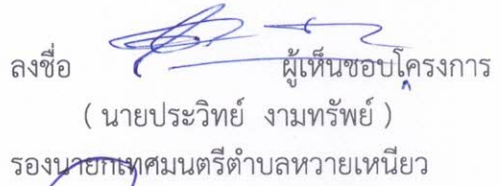 ลงชื่อ ผู้เห็นชอบโครงการ
( นายประวิทย์ งามทรัพย์ )
รองนายกเทศมนตรีตำบลหวายเหนียว